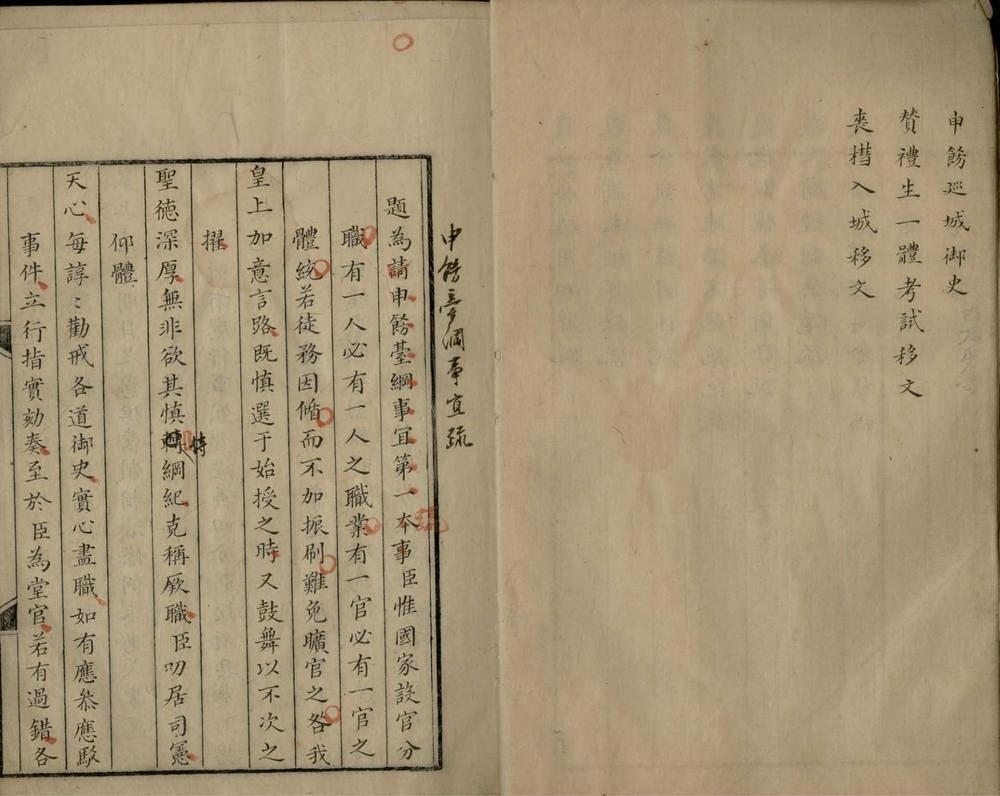 申餙巡城御史
贊禮生一體考試移文
喪櫘入城移文
申餙臺綱事宜疏
題為請申餙臺綱事宜第一本事臣惟國家設官分
職有一人必有一人之職業有一官必有一官之
體統若徒務因循而不加振刷難免曠官之咎我
皇上加意言路既慎選于始授之時又鼓舞以不次之
擢
聖德深厚無非欲其慎持綱紀克稱厥職臣叨居司憲
仰體
天心每諄〻勸戒各道御史實心盡職如有應叅應駁
事件立行指實劾奏至於臣為堂官若有過錯各